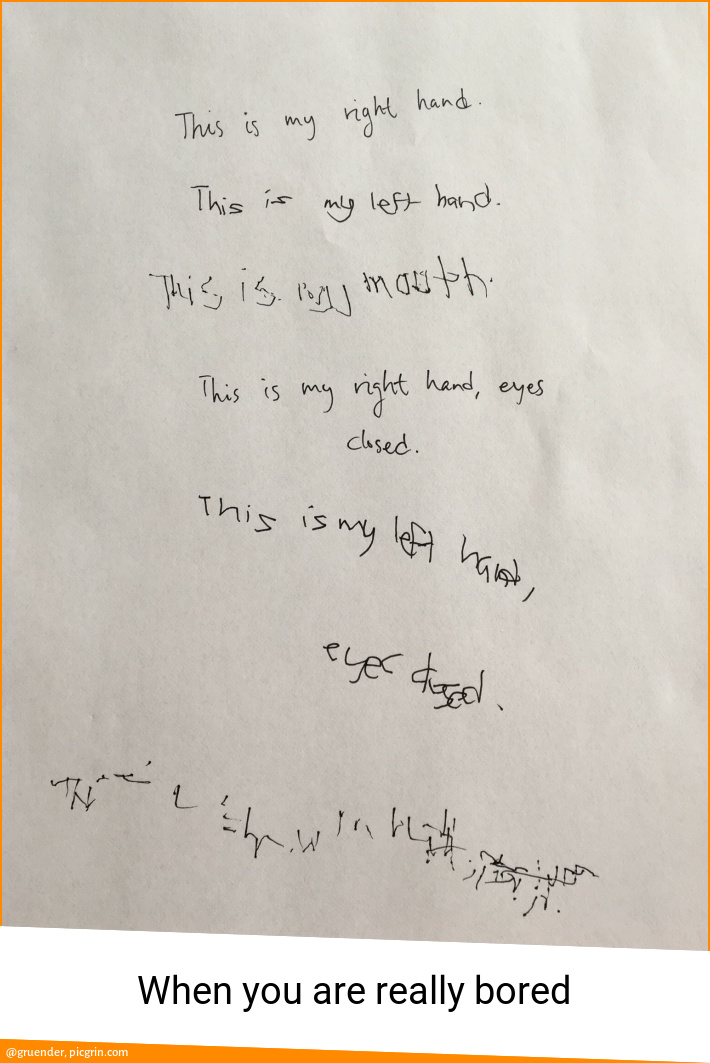 This is my right hand.
This is my left hand.
This is my mouth.
This is my right hand, eyes
closed.
This is my left hand,
eyes closed.
When you are really bored
@gruender, picgrin.com